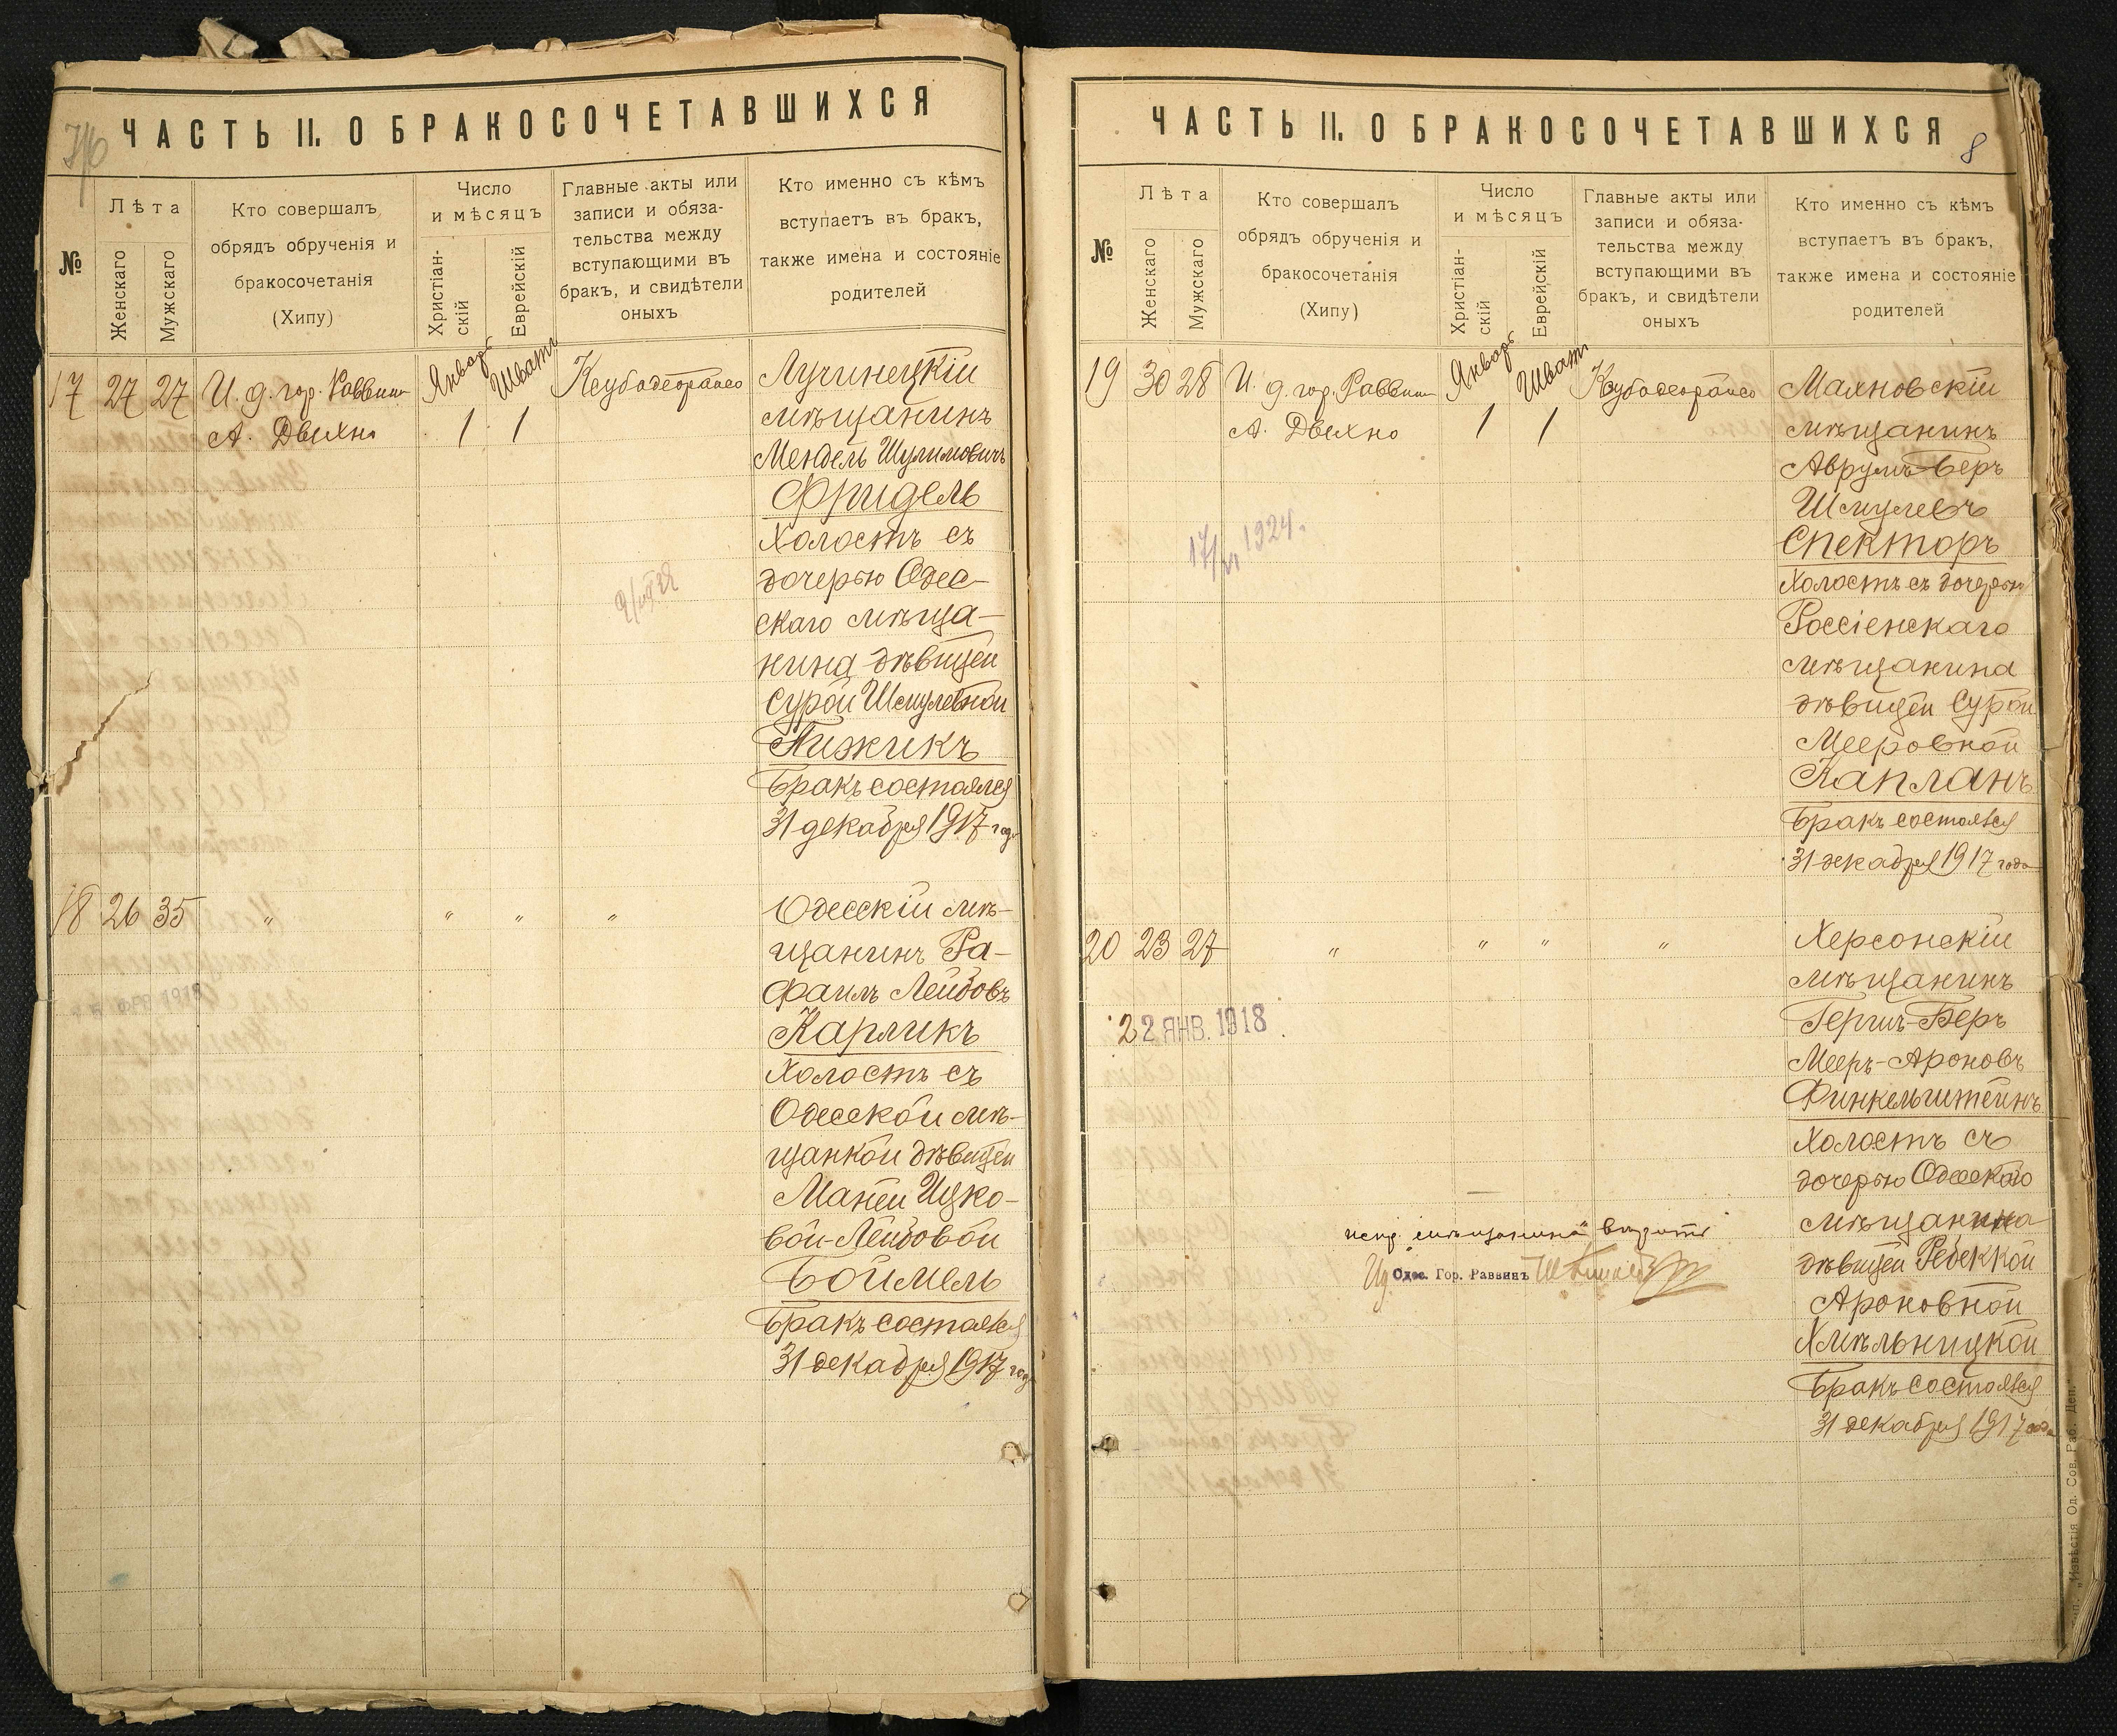 ЧАСТЬ II. О БРАКОСОЧЕТАВШИХСЯ
№
Лѣта
Женскаго
Мужскаго
Кто совершалъ
обрядъ обрученія и
бракосочетанія
(Хипу)
Число
и мѣсяцъ
Христіан-
скій
Еврейскій
Главные акты или
записи и обяза-
тельства между
вступающими въ
бракъ, и свидѣтели
оныхъ
Кто именно съ кѣмъ
вступаетъ въ бракъ,
также имена и состояніе
родителей
17 27 27
И. д. гор. Раввин
А. Двехно
Январь
1
Шватъ
1
Лучинецкій
мѣщанинъ
Мендель Шулимовичъ
Фридель
Холостъ съ
дочерью Одес-
скаго мѣща-
нина дѣвицей
Сурой Шмулевной
Пижикъ
Бракъ состоялся
31 декабря 1917 год
18 26 35 " " " "
Одесскій мѣ-
щанинъ Ра-
фаилъ Лейбовъ
Карликъ
Холостъ съ
Одесской мѣ-
щанкой дѣвицей
Маней Ицко-
вой-Лейбовой
Боймель
Бракъ состоялся
31 декабря 1917 год
ЧАСТЬ II. О БРАКОСОЧЕТАВШИХСЯ
8
№
Лѣта
Женскаго
Мужскаго
Кто совершалъ
обрядъ обрученія и
бракосочетанія
(Хипу)
Число
и мѣсяцъ
Христіан-
скій
Еврейскій
Главные акты или
записи и обяза-
тельства между
вступающими въ
бракъ, и свидѣтели
оныхъ
Кто именно съ кѣмъ
вступаетъ въ бракъ,
также имена и состояніе
родителей
19 30 28
И. д. гор. Раввин
А. Двехно
Январь
1
Шватъ
1
17/VI 1924.
Махновскій
мѣщанинъ
Аврумъ-Беръ
Шмулевъ
Спекторъ
Холостъ съ дочерью
Россіенскаго
мѣщанина
дѣвицей Сурой
Мееровной
Капланъ
Бракъ состоялся
31 декабря 1917 года
20 23 27 " " " "
22 ЯНВ. 1918
Херсонскій
мѣщанинъ
Гершъ-Беръ
Мееръ-Ароновъ
Финкельштейнъ
Холостъ съ
дочерью Одесскаго
мѣщанина
дѣвицей Ребеккой
Ароновной
Хмѣльницкой
Бракъ состоялся
31 декабря 1917 года
испр. „мѣщанина" вѣрить
Ид Одес. Гор. Раввинъ
„Извѣстія Од. Сов. Раб. Деп."